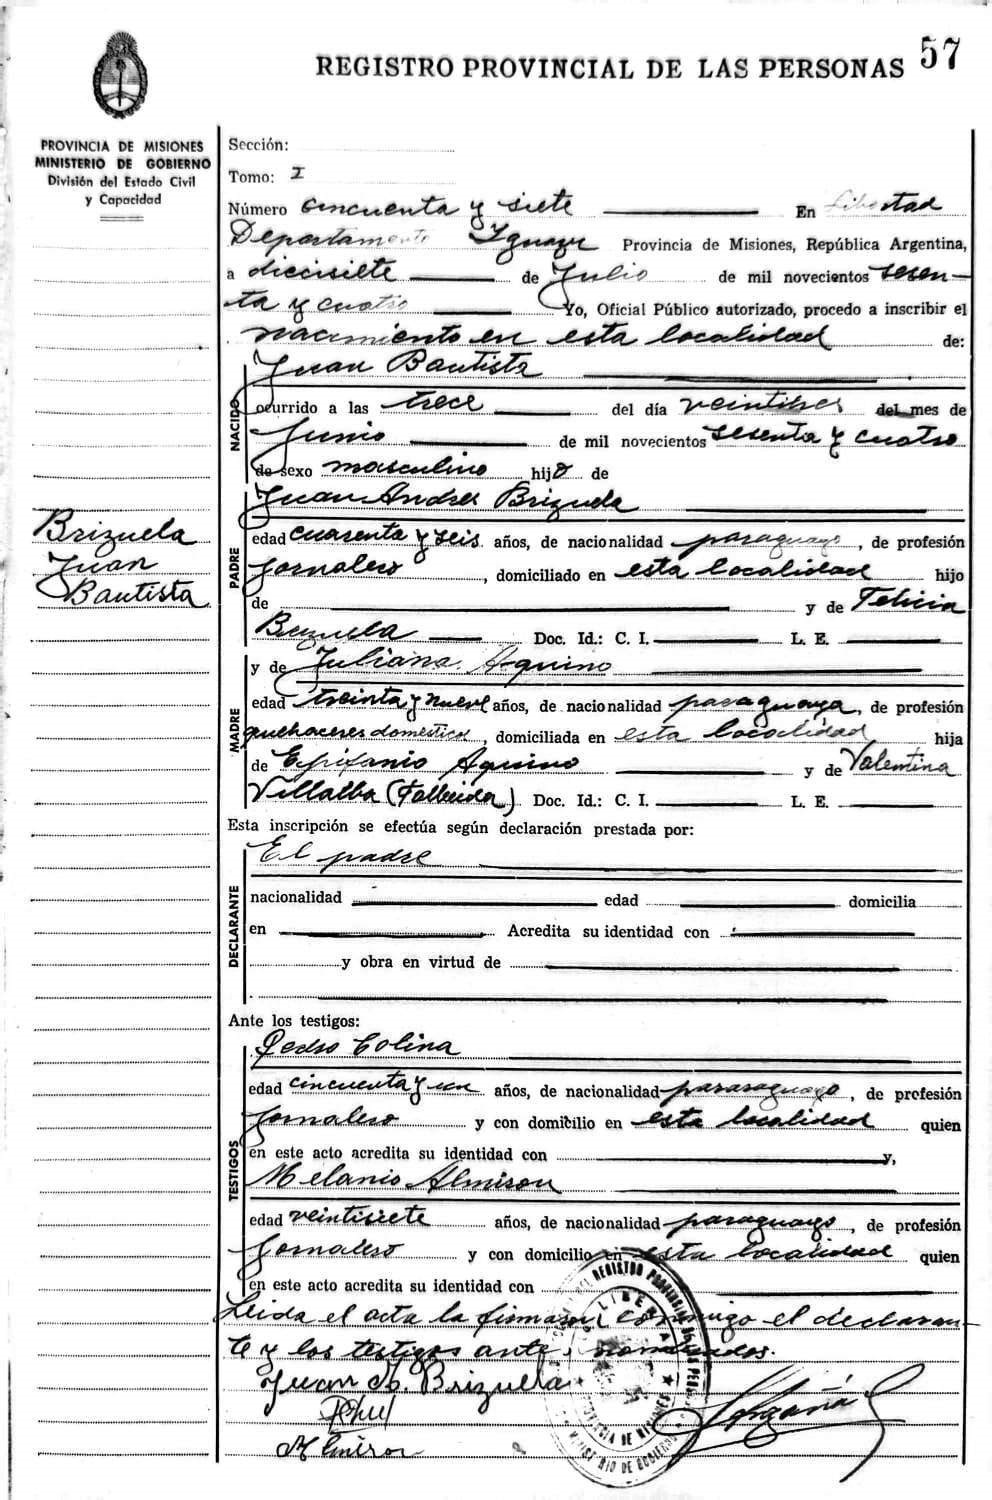 REGISTRO PROVINCIAL DE LAS PERSONAS 57
PROVINCIA DE MISIONES
MINISTERIO DE GOBIERNO
División del Estado Civil
y Capacidad
Sección:
Tomo: I
Número cincuenta y siete En Libertad
Departamento Iguazu Provincia de Misiones, República Argentina,
a diecisiete de Julio de mil novecientos sesen-
ta y cuatro Yo, Oficial Público autorizado, procedo a inscribir el
nacimiento en esta localidad de:
NACIDO
Juan Bautista
ocurrido a las trece del día veintitres del mes de
Junio de mil novecientos sesenta y cuatro
de sexo masculino hijo de
Brizuela
Juan
Bautista
PADRE
Juan Andres Brizuela
edad cuarenta y seis años, de nacionalidad paraguayo, de profesión
Jornalero, domiciliado en esta localidad hijo
de y de Felicia
Brizuela Doc. Id.: C. I. L. E.
MADRE
y de Juliana Aquino
edad treinta y nueve años, de nacionalidad paraguaya, de profesión
quehaceres domestica, domiciliada en esta localidad hija
de Epifanio Aquino y de Valentina
Villalba (fallecida) Doc. Id.: C. I. L. E.
Esta inscripción se efectúa según declaración prestada por:
DECLARANTE
El padre
nacionalidad edad domicilia
en Acredita su identidad con
y obra en virtud de
Ante los testigos:
TESTIGOS
Pedro Colina
edad cincuenta y un años, de nacionalidad pararaguayo, de profesión
Jornalero y con domicilio en esta localidad quien
en este acto acredita su identidad con y,
Melanio Almiron
edad veintisiete años, de nacionalidad paraguayo, de profesión
Jornalero y con domicilio en esta localidad quien
en este acto acredita su identidad con
Leida el acta la firman conmigo el declaran-
te y los testigos ante nombrados.
Juan A. Brizuela
Almiron
REGISTRO PROVINCIAL DE LAS PERSONAS
LIBERTAD
PROVINCIA DE MISIONES
MINISTERIO DE GOBIERNO